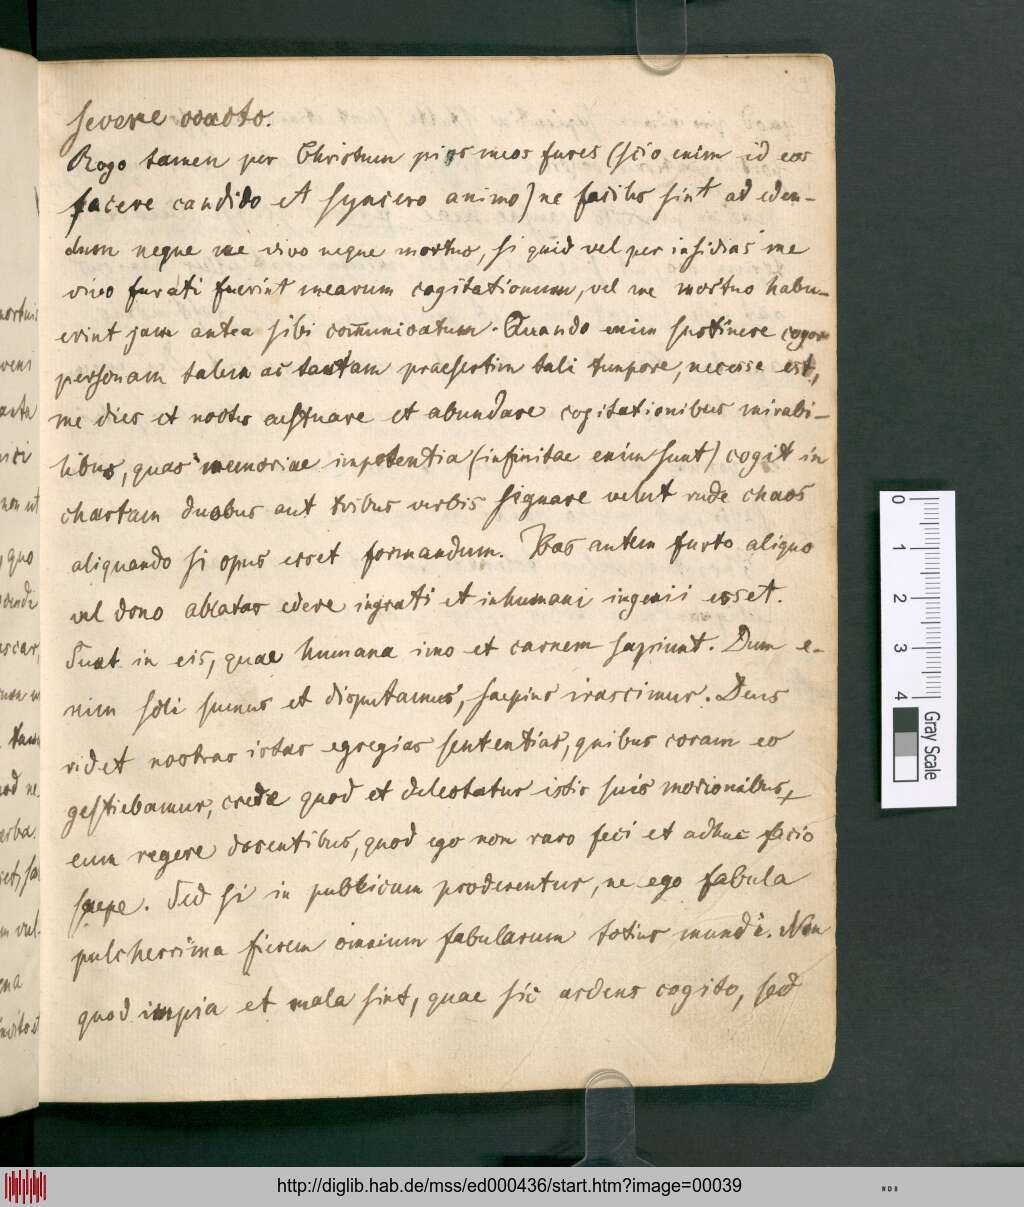 severe oxacto.
Rogo tamen per Christum pios meos fures (scio enim id eos
facere candido et syncero animo) ne faciles sint ad eden-
dum neque me vivo neque mortuo, si quid vel per insidias me
vivo furati fuerint mearum cogitationum, vel me mortuo habu-
erint jam antea sibi communicatum. Quando enim sustinere cogor
personam talem ac tantam praesertim tali tempore, necesse est,
me dies et noctes aestuare et abundare cogitationibus mirabi-
libus, quas memoriae impotentia (infinitae enim sunt) cogit in
chartam duobus aut tribus verbis signare velut rude chaos
aliquando si opus esset formandum. Has autem furto aliquo
vel dono ablatas edere ingrati et inhumani ingenii esset.
Sunt in eis, quae humana imo et carnem sapiunt. Dum e-
nim soli sumus et disputamus, saepius irascimur. Deus
ridet nostras istas egregias sententias, quibus coram eo
gestiebamur, crede quod et delectatur istis suis morionibus,
eum regere docentibus, quod ego non raro feci et adhuc facio
saepe. Sed si in publicum proderentur, ne ego fabula
pulcherrima fierem omnium fabularum totius mundi. Non
quod impia et mala sint, quae sic ardens cogito, sed
mortuis
non ut
quo
0
1
2
3
4
Gray Scale
http://diglib.hab.de/mss/ed000436/start.htm?image=00039
WDB